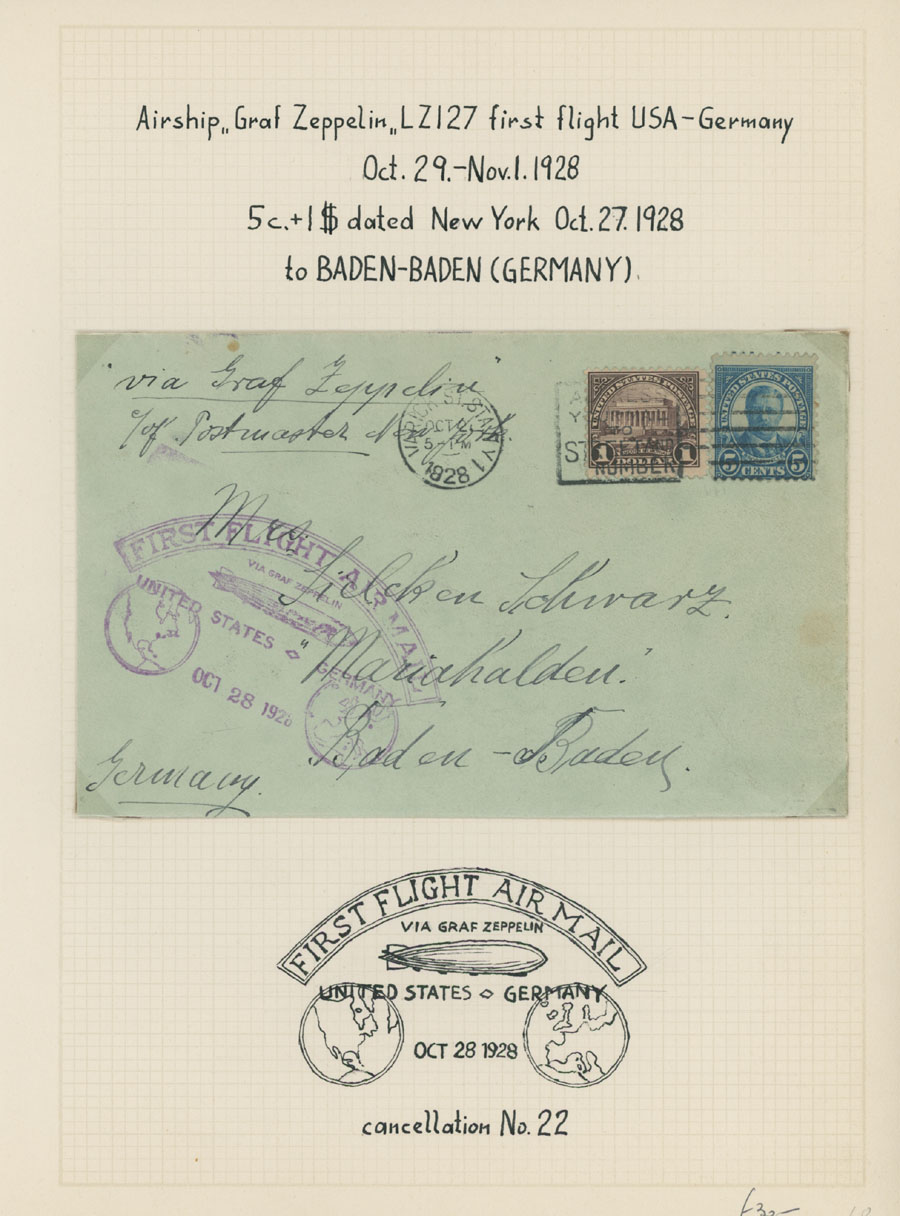 Airship „Graf Zeppelin„ LZ127 first flight USA–Germany
Oct. 29.–Nov.1.1928
5c.+1$ dated New York Oct.27.1928
to BADEN-BADEN (GERMANY).
"via Graf Zeppelin"
c/of Postmaster New York.
VARICK ST. STA. N.Y.
OCT
5 PM
1928
ST
NUMBER
UNITED STATES POSTAGE
1 DOLLAR 1
UNITED STATES POSTAGE
5 CENTS 5
Mrs.
Sielcken Schwarz.
"Mariahalden."
Baden-Baden.
Germany.
FIRST FLIGHT AIR MAIL
VIA GRAF ZEPPELIN
UNITED STATES ◇ GERMANY
OCT 28 1928
FIRST FLIGHT AIR MAIL
VIA GRAF ZEPPELIN
UNITED STATES ◇ GERMANY
OCT 28 1928
cancellation No. 22